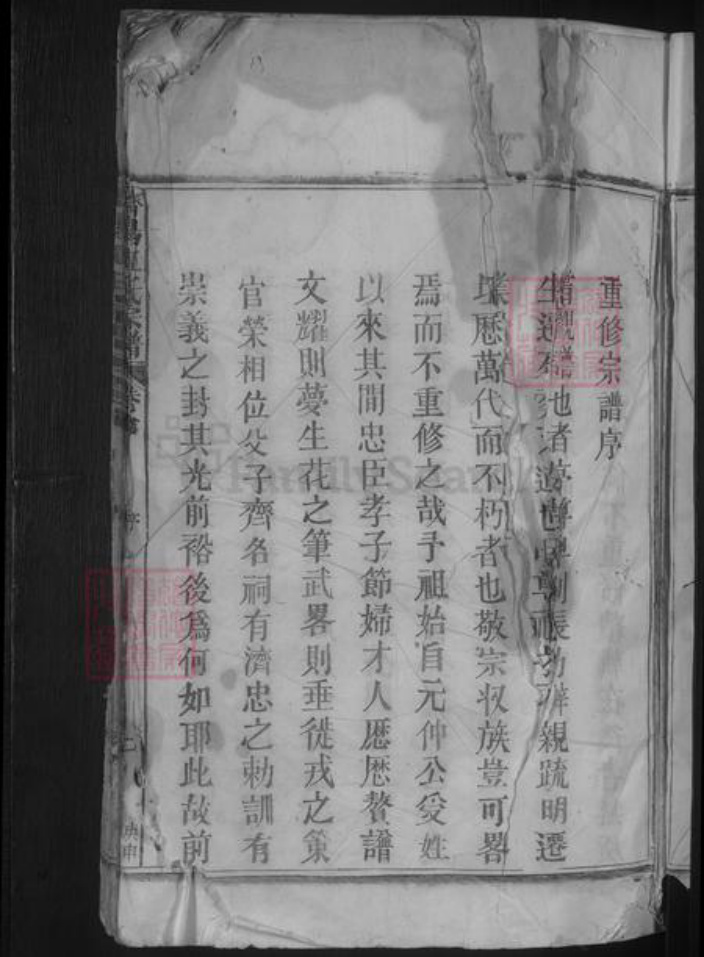 重修宗譜序
也者尊卑別長幼辨親疏明遷
歷萬代而不朽者也敬宗收族豈可畧
焉而不重修之哉予祖始自元仲公受姓
以來其間忠臣孝子節婦才人歷歷贅譜
文耀則夢生花之筆武畧則垂從戎之策
官榮相位父子齊名祠有濟忠之勅訓有
崇義之封其光前裕後為何如耶此故前
氏宗譜
序
庚申
FamilySearch